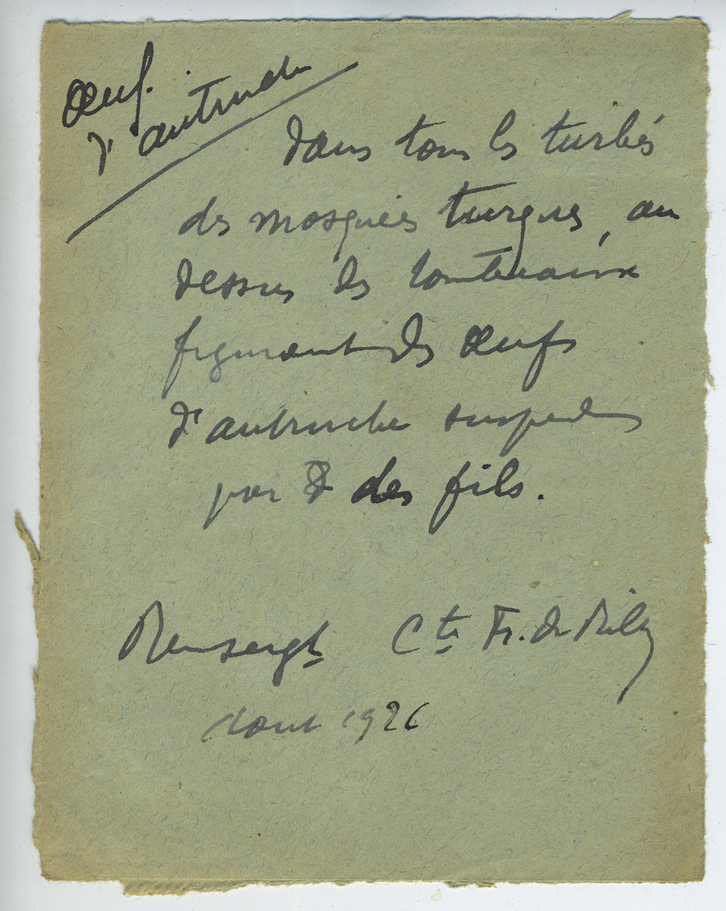 Œuf.
d'autruche
dans tous les turbés
des mosquées turques, au
dessus des tombeaux
figurent des œufs
d'autruche suspendus
par des fils.
Renseigt Cte Fr. de Rilly
Aout 1926